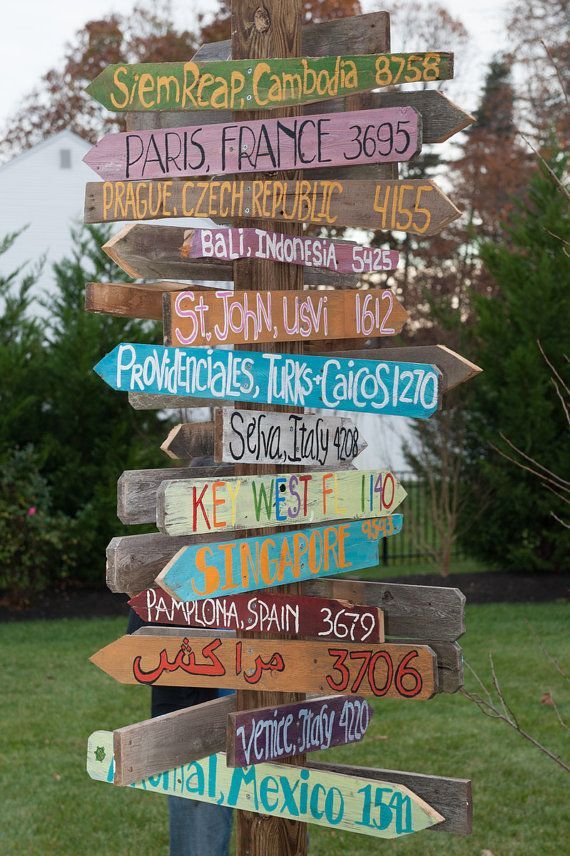 SiemReap, Cambodia 8758
PARIS, FRANCE 3695
PRAGUE, CZECH REPUBLIC 4155
BALI, INDONESIA 5425
St. JOHN, USVI 1612
PROVIDENCIALES, TURKS+CAICOS 1270
Selva, Italy 4208
KEY WEST, FL 1140
SINGAPORE 9543
PAMPLONA, SPAIN 3679
مراكش 3706
Venice, Italy 4220
Mexico 1541